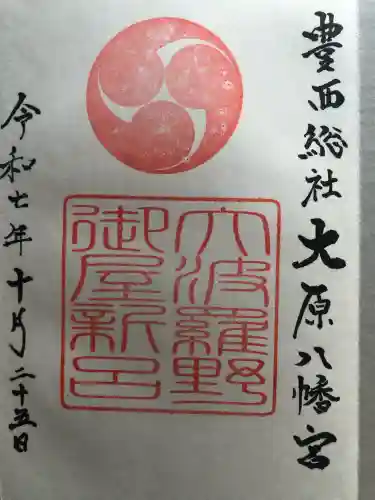 豊西総社 大原八幡宮
大波羅野
御屋新宮
令和七年十月二十五日